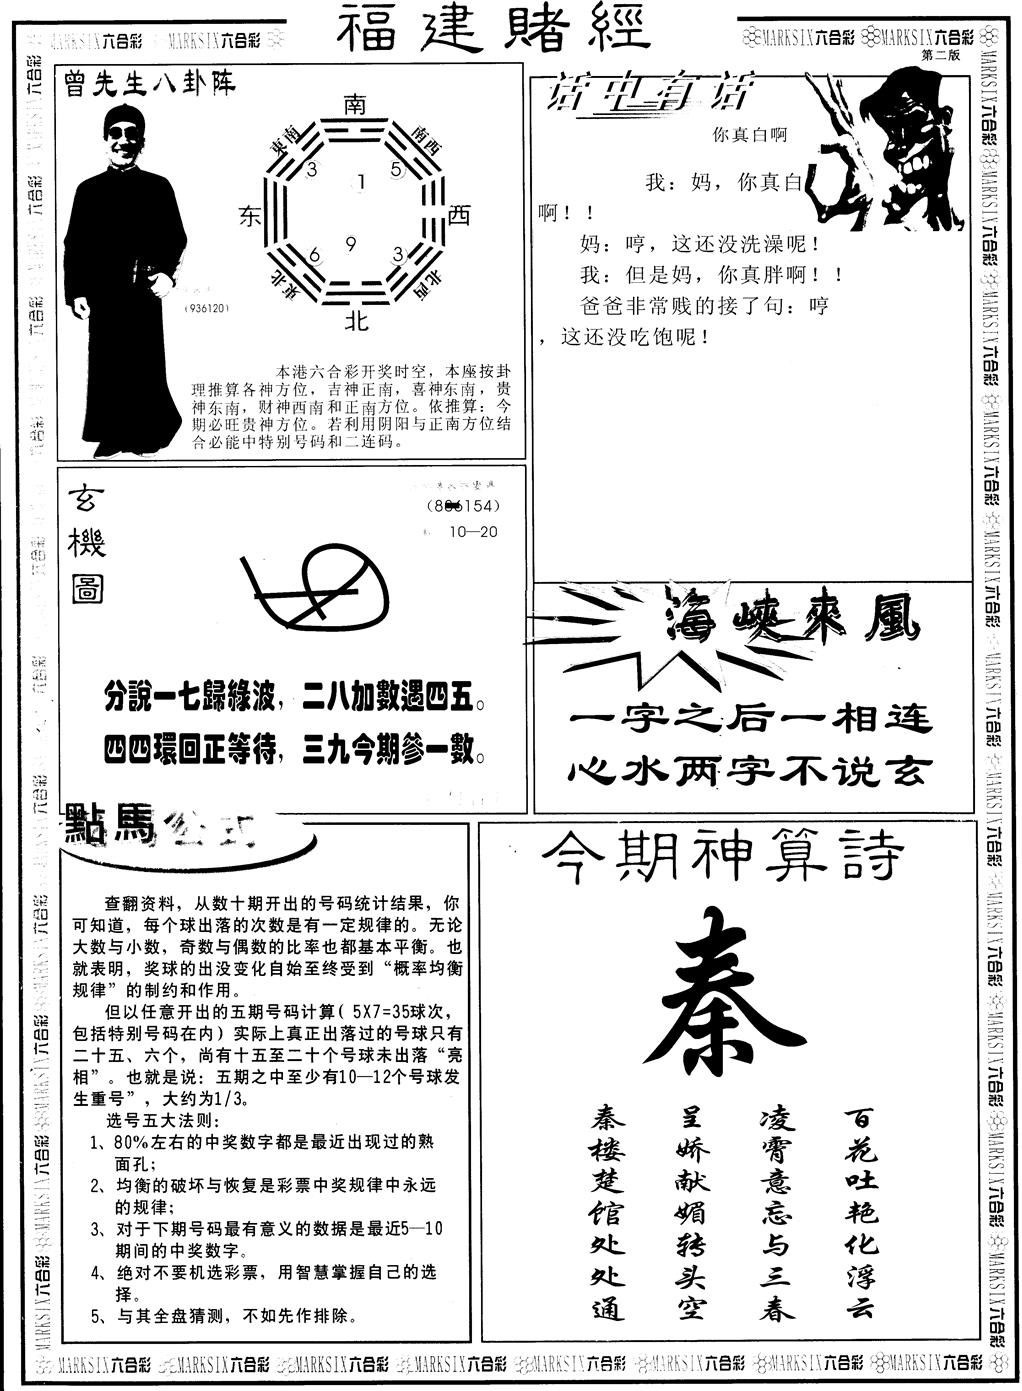 福建賭經
MARKSIX六合彩 MARKSIX六合彩
MARKSIX六合彩 MARKSIX六合彩
第二版
曾先生八卦阵
南
東南
南西
3
1
5
东
西
6
9
3
東北
北西
北
(936120)
本港六合彩开奖时空，本座按卦
理推算各神方位，吉神正南，喜神东南，贵
神东南，财神西南和正南方位。依推算：今
期必旺贵神方位。若利用阴阳与正南方位结
合必能中特别号码和二连码。
话中有话
你真白啊
我：妈，你真白
啊！！
妈：哼，这还没洗澡呢！
我：但是妈，你真胖啊！！
爸爸非常贱的接了句：哼
，这还没吃饱呢！
玄機圖
10—20
分說一七歸綠波，二八加數遇四五。
四四環回正等待，三九今期參一數。
海峽來風
一字之后一相连
心水两字不说玄
點馬公式
查翻资料，从数十期开出的号码统计结果，你
可知道，每个球出落的次数是有一定规律的。无论
大数与小数，奇数与偶数的比率也都基本平衡。也
就表明，奖球的出没变化自始至终受到“概率均衡
规律”的制约和作用。
但以任意开出的五期号码计算( 5X7=35球次，
包括特别号码在内）实际上真正出落过的号球只有
二十五、六个，尚有十五至二十个号球未出落“亮
相”。也就是说：五期之中至少有10—12个号球发
生重号”，大约为1/3。
选号五大法则：
1、80%左右的中奖数字都是最近出现过的熟
面孔；
2、均衡的破坏与恢复是彩票中奖规律中永远
的规律；
3、对于下期号码最有意义的数据是最近5—10
期间的中奖数字。
4、绝对不要机选彩票，用智慧掌握自己的选
择。
5、与其全盘猜测，不如先作排除。
今期神算詩
秦
百花吐艳化浮云
凌霄意忘与三春
呈娇献媚转头空
秦楼楚馆处处通
MARKSIX六合彩 MARKSIX六合彩 MARKSIX六合彩 MARKSIX六合彩 MARKSIX六合彩 MARKSIX六合彩 MARKSIX六合彩 MARKSIX六合彩